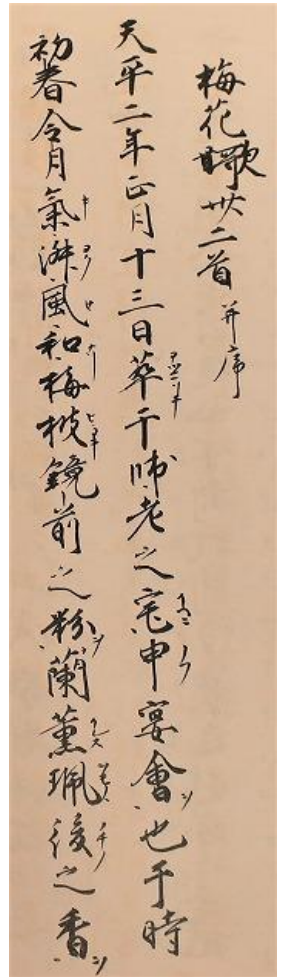 梅花謌卅二首 并序
天平二年正月十三日萃于帥老之宅申宴會也于時
初春令月氣淑風和梅披鏡前之粉蘭薫珮後之香